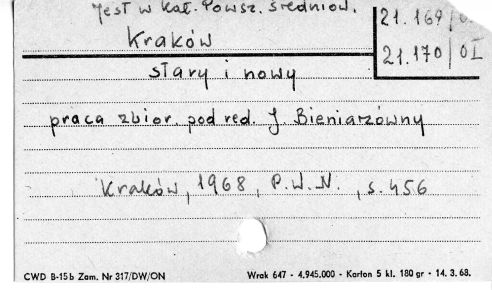 jest w kat. Powsz. średniow.
21.169/0
Kraków
21.170/0I
stary i nowy
praca zbior. pod red. J. Bieniarzówny
Kraków, 1968, P.W.N., s. 456
CWD B-15b Zam. Nr 317/DW/ON Wrak 647 - 4.945.000 - Karton 5 kl. 180 gr - 14. 3. 68.